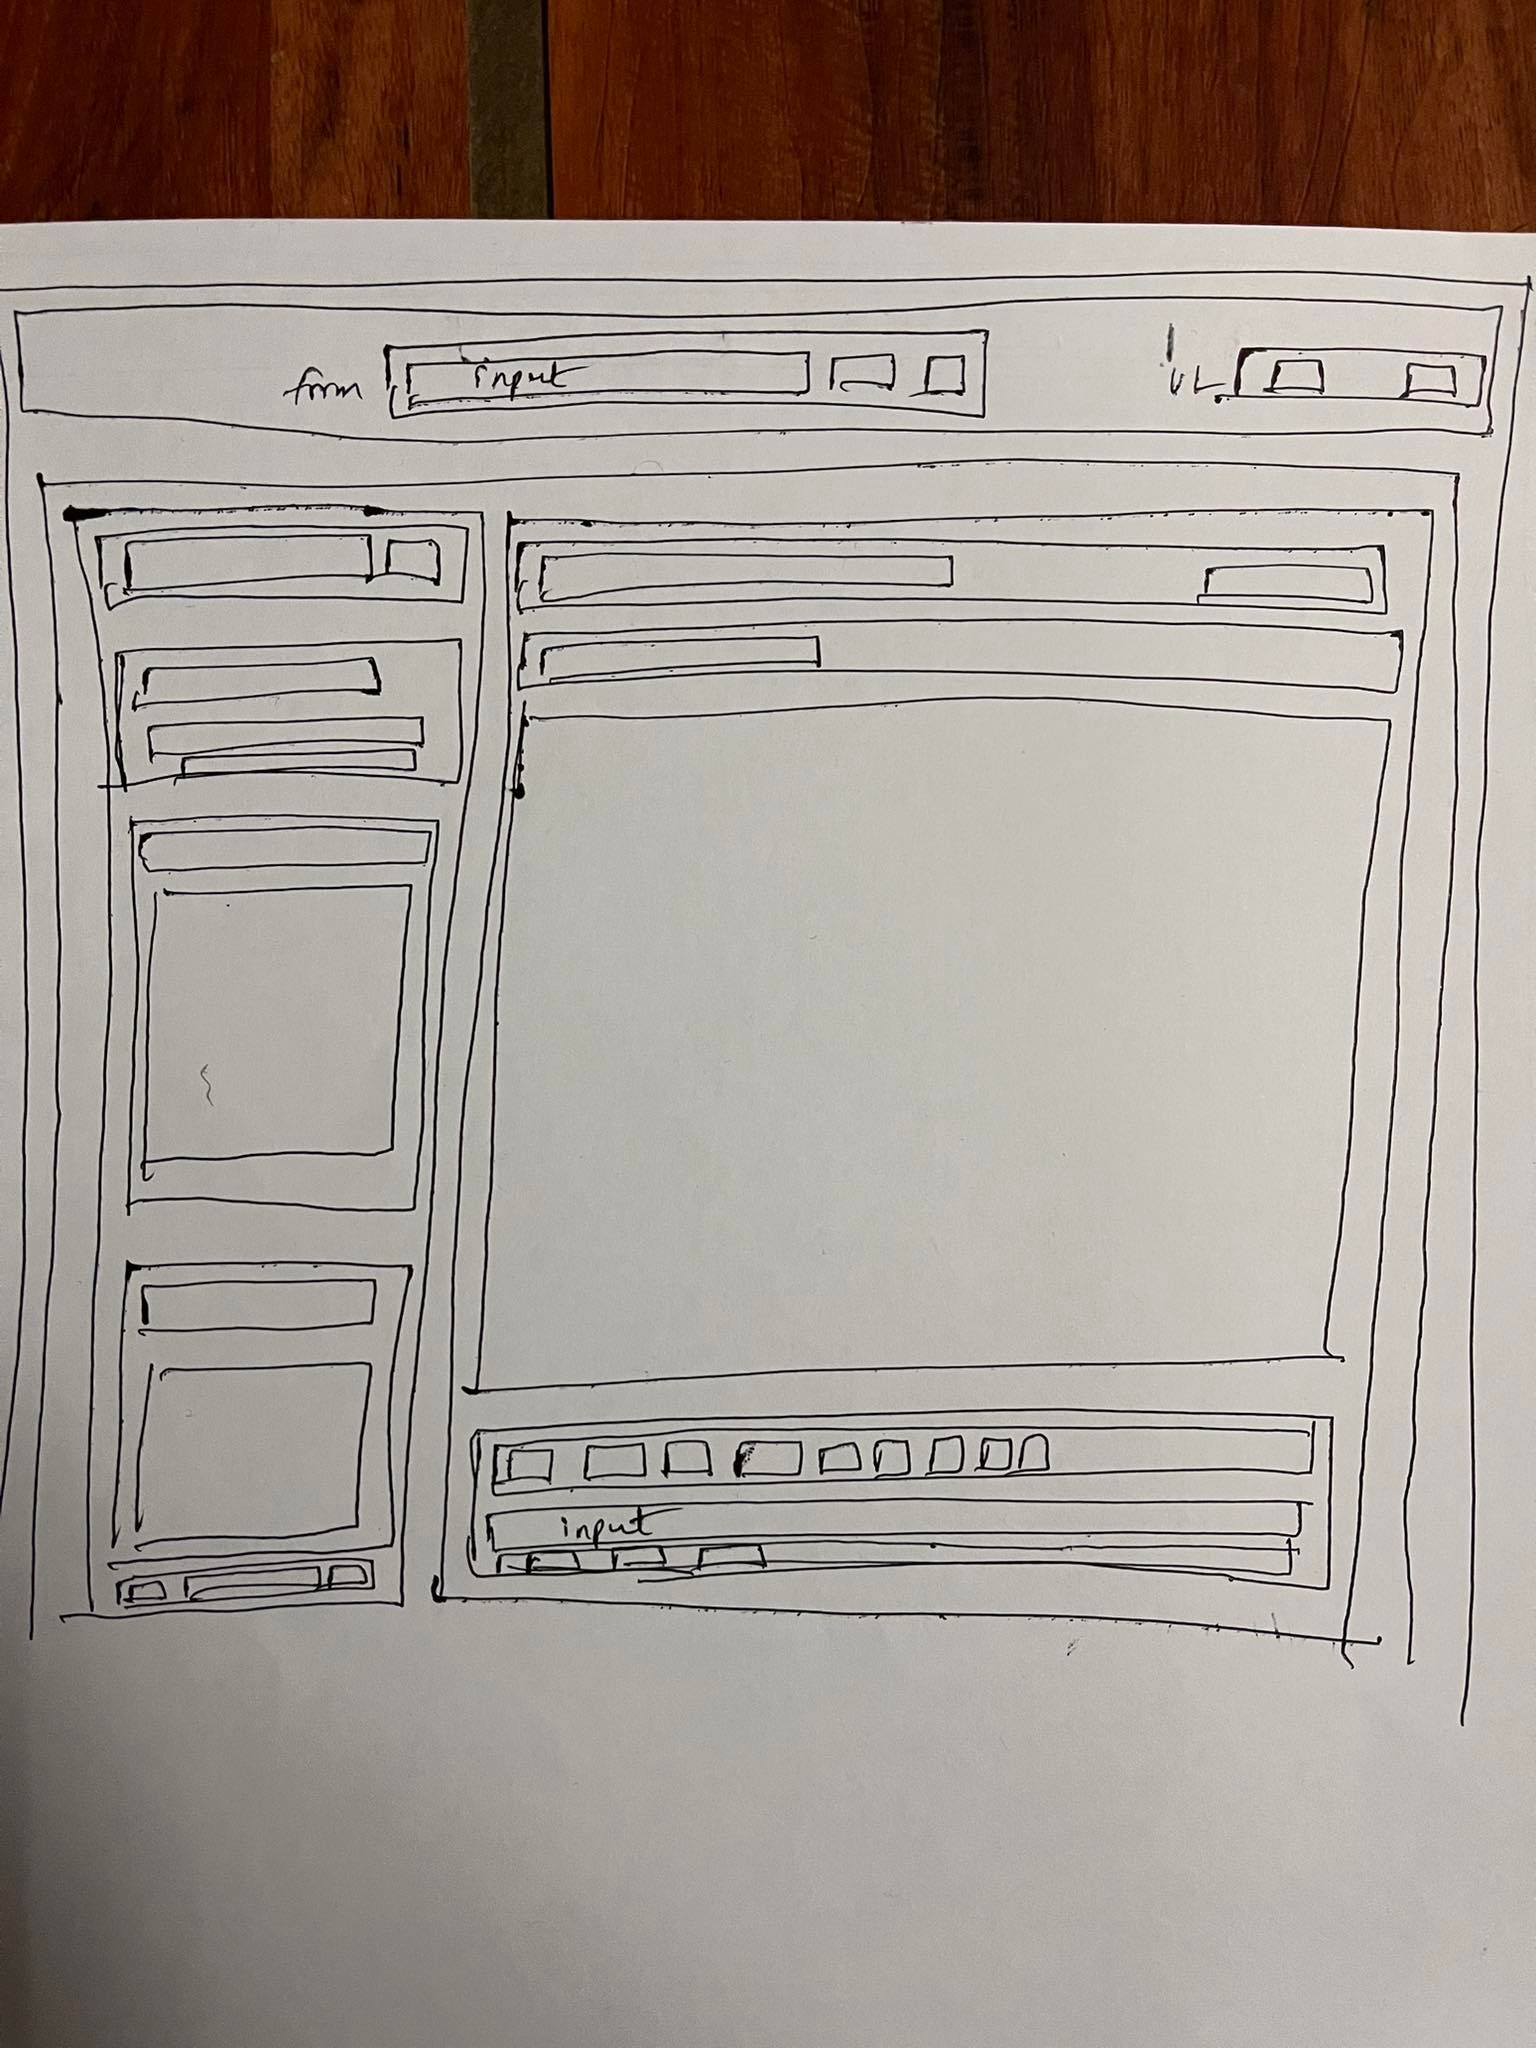 form
input
UL
input